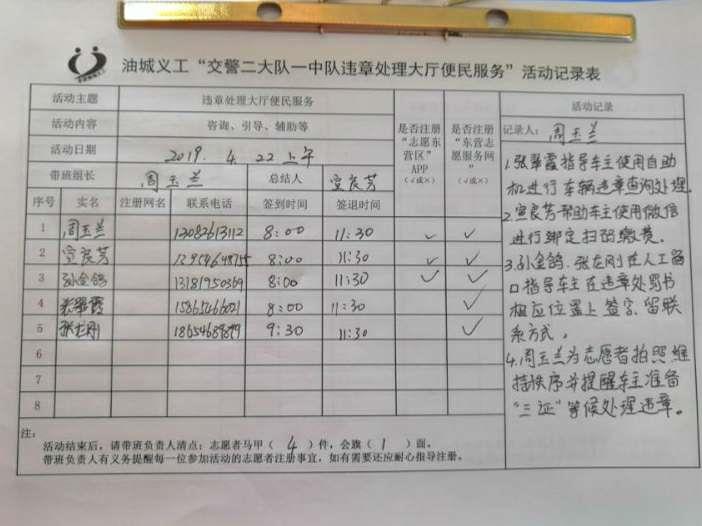 油城义工“交警二大队一中队违章处理大厅便民服务”活动记录表
活动主题 违章处理大厅便民服务
活动内容 咨询、引导、辅助等
活动日期 2019. 4. 22 上午
带班组长 周玉兰 总结人 宣良芳
序号 实名 注册网名 联系电话 签到时间 签退时间
是否注册“志愿东营区”APP（√或×）
是否注册“东营志愿服务网”（√或×）
1 周玉兰 13082613112 8:00 11:30 ✓ ✓
2 宣良芳 8:00 11:30 ✓ ✓
3 孙金鸽 13181950369 8:00 11:30 ✓ ✓
4 张翠霞 15865466021 8:00 11:30 ✓
5 张龙刚 9:30 11:30 ✓
6
7
8
注：
活动结束后，请带班负责人清点：志愿者马甲（ 4 ）件，会旗（ 1 ）面。
带班负责人有义务提醒每一位参加活动的志愿者注册事宜，如有需要还应耐心指导注册。
活动记录
记录人：周玉兰
1.张翠霞指导车主使用自助
机进行车辆违章查询处理.
2.宣良芳帮助车主使用微信
进行绑定扫码缴费。
3.孙金鸽、张龙刚在人工窗
口指导车主在违章处罚书
相应位置上签字、留联
系方式。
4.周玉兰为志愿者拍照、维
持秩序并提醒车主准备
“三证”等候处理违章。